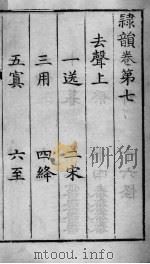 隸韻卷第七
去聲上
一送
二宋
三用
四絳
五寘
六至